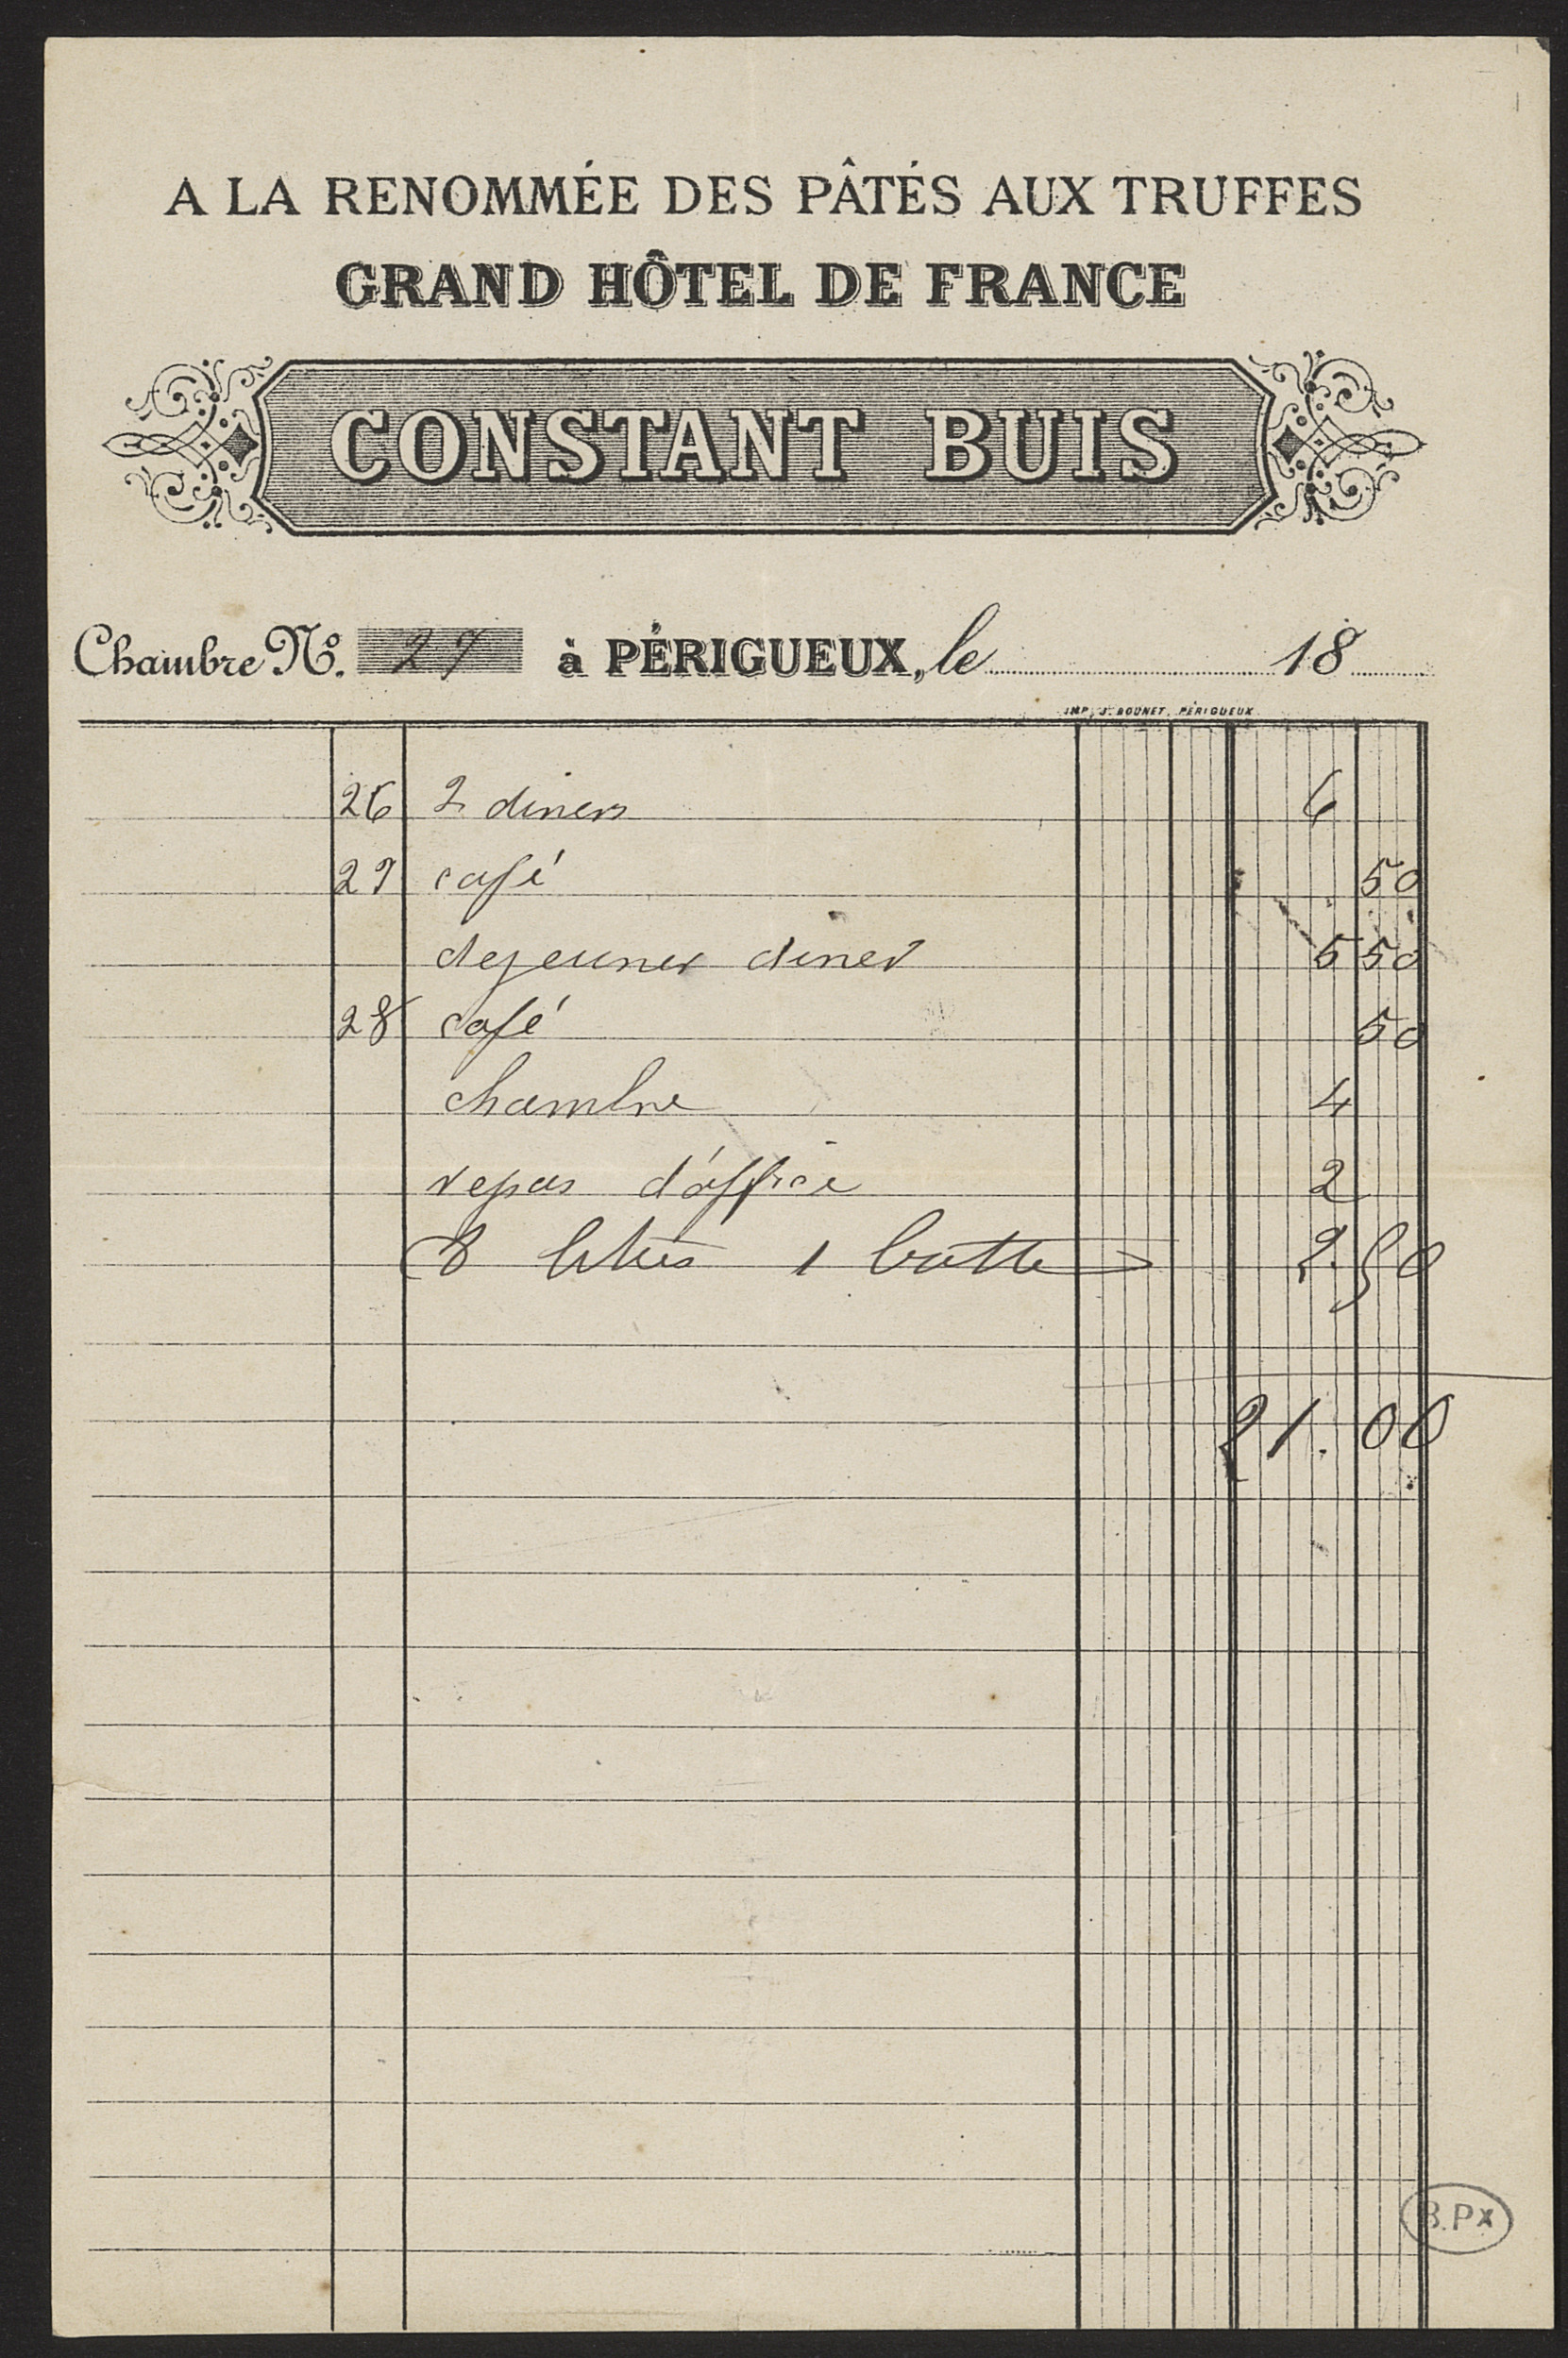 A LA RENOMMÉE DES PÂTÉS AUX TRUFFES
GRAND HÔTEL DE FRANCE
CONSTANT BUIS
Chambre No. 27 à PÉRIGUEUX, le 18
IMP. J. BOUNET, PÉRIGUEUX
26 2 diners 6
27 café 50
dejeuner diner 5 50
28 café 50
chambre 4
repas d'office 2
8 1 2.50
21.00
B.PX